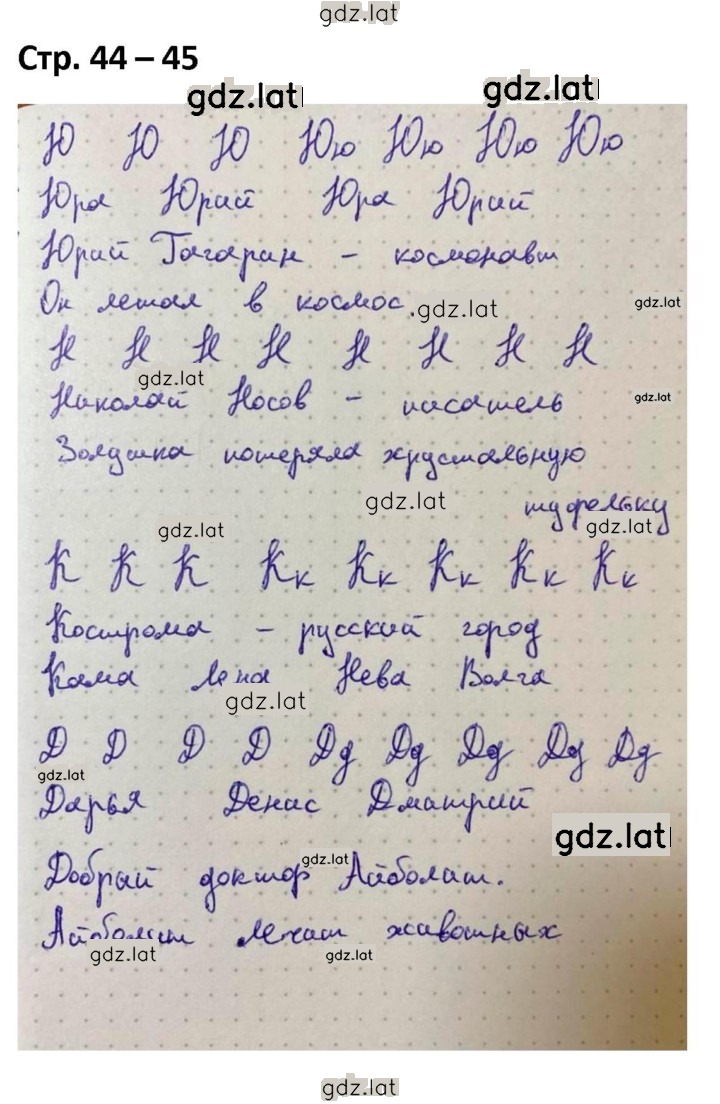 gdz.lat
Стр. 44 – 45
gdz.lat gdz.lat
Ю Ю Ю Юю Юю Юю Юю
Юра Юрий Юра Юрий
Юрий Гагарин – космонавт
Он летал в космос.
gdz.lat gdz.lat
Н Н Н Н Н Н Н Н
gdz.lat
Николай Носов – писатель
gdz.lat
Золушка потеряла хрустальную
туфельку
gdz.lat
gdz.lat gdz.lat
К К К Кк Кк Кк Кк Кк
Кострома – русский город
Кама Лена Нева Волга
gdz.lat
Д Д Д Д Дд Дд Дд Дд Дд
gdz.lat
Дарья Денис Дмитрий
gdz.lat
Добрый доктор Айболит.
gdz.lat
Айболит лечит животных
gdz.lat gdz.lat
gdz.lat